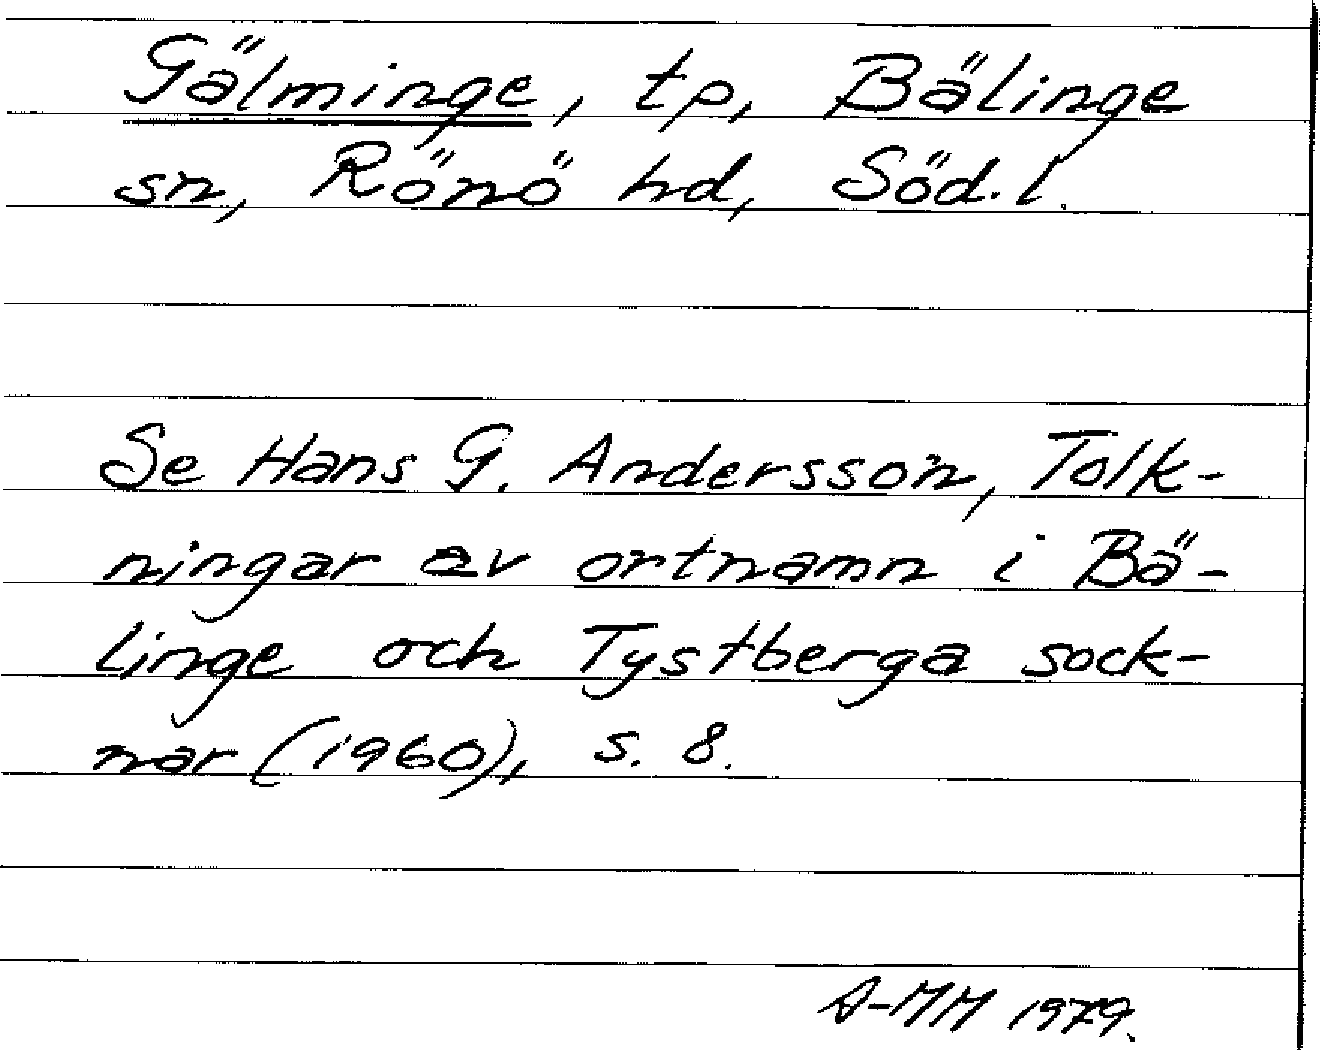 Gälminge, tp, Bälinge
sn, Rönö hd, Söd.l.
Se Hans G. Andersson, Tolk-
ningar av ortnamn i Bä-
linge och Tystberga sock-
nar (1960), s. 8.
A-MM 1979.